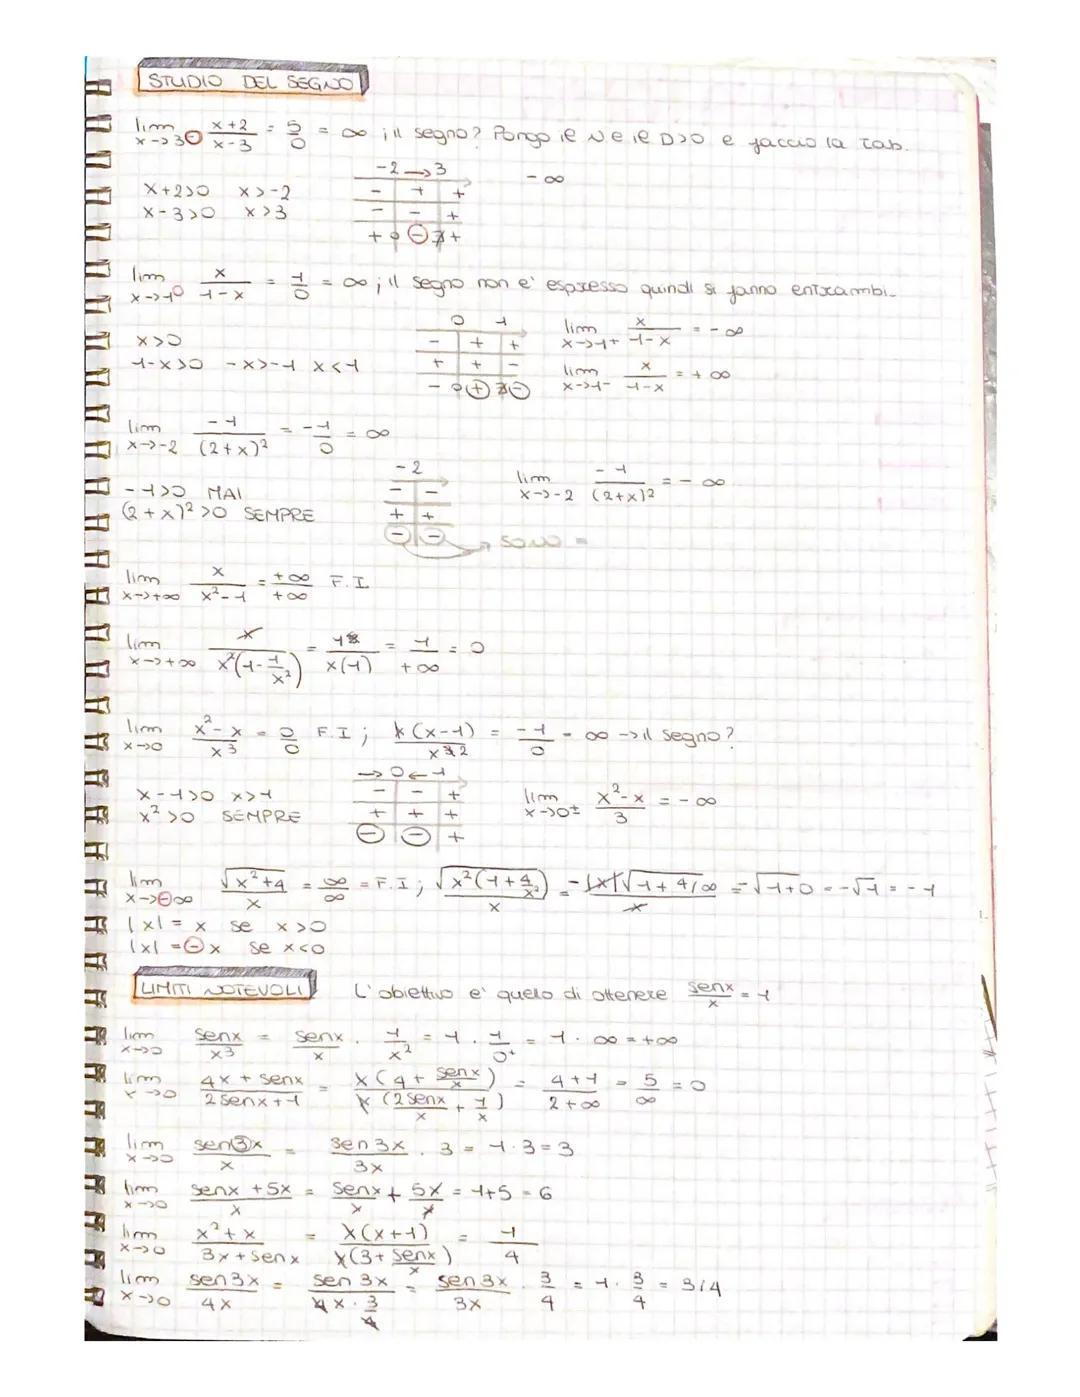 STUDIO DEL SEGNO
lim x->3⊖ x+2/x-3 = 5/0 = ∞ ; il segno? Pongo ie N e ie D>0 e faccio la tab.
-2 → 3
- ∞
x+2>0 x>-2 - + +
x-3>0 x>3 - - +
+ 0 ⊖ ∄ +
lim x->1 x/1-x = 1/0 = ∞ ; il segno non e' espresso quindi si fanno entrambi.
0 1
lim x->1+ x/1-x = - ∞
x>0 - + +
1-x>0 -x>-1 x<1 + + -
lim x->1- x/1-x = + ∞
- 0 ⊕ ∄ ⊖
lim x->-2 -1/(2+x)² = -1/0 = ∞
-2
lim x->-2 -1/(2+x)² = - ∞
-1>0 MAI - -
(2+x)²>0 SEMPRE + +
⊖ ⊖ → SONO =
lim x->+∞ x/x²-1 = +∞/+∞ F.I
lim x->+∞ x/x²(1-1/x²) = 1/x(1) = 1/+∞ = 0
lim x->0 x²-x/x³ = 0/0 F.I ; x(x-1)/x³ 2 = -1/0 = ∞ -> il segno?
→ 0 ← 1
x-1>0 x>1 - - +
x²>0 SEMPRE + + +
⊖ ⊖ +
lim x->0± x²-x/3 = - ∞
lim x->⊖∞ √x²+4/x = ∞/∞ = F.I ; √x²(1+4/x²)/x = -|x|√1+4/∞/x = -√1+0 = -√1 = -1
|x| = x se x>0
|x| = ⊖x se x<0
LIMITI NOTEVOLI L'obiettivo e' quelo di ottenere senx/x = 1
lim x->0 senx/x³ = senx/x · 1/x² = 1 · 1/0+ = 1 · ∞ = +∞
lim x->0 4x + senx/2senx+1 = x(4 + senx/x)/x(2senx/x + 1/x) = 4+1/2+∞ = 5/∞ = 0
lim x->0 sen3x/x = sen3x/3x · 3 = 1·3 = 3
lim x->0 senx +5x/x = senx/x + 5x/x = 1+5 = 6
lim x->0 x²+x/3x+senx = x(x+1)/x(3+senx/x) = 1/4
lim x->0 sen3x/4x = sen 3x/4x·3/4 = sen3x/3x · 3/4 = 1 · 3/4 = 3/4